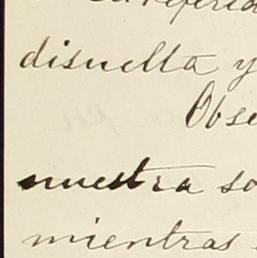 disuelta y
Obse
nuestra so
mientras